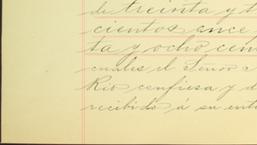 de treinta y t
cientos once
ta y ocho cen
cuales el Señor
Rio confiesa y d
recibido á su ent